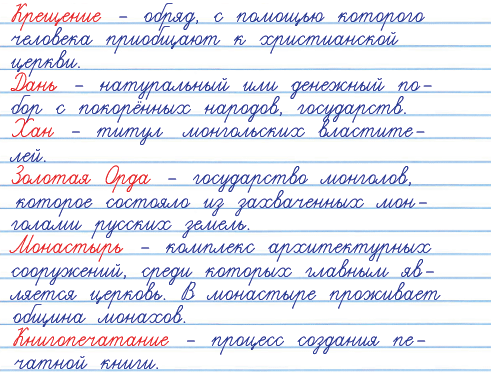 Крещение – обряд, с помощью которого
человека приобщают к христианской
церкви.
Дань – натуральный или денежный по-
бор с покорённых народов, государств.
Хан – титул монгольских властите-
лей.
Золотая Орда – государство монголов,
которое состояло из захваченных мон-
голами русских земель.
Монастырь – комплекс архитектурных
сооружений, среди которых главным яв-
ляется церковь. В монастыре проживает
община монахов.
Книгопечатание – процесс создания пе-
чатной книги.